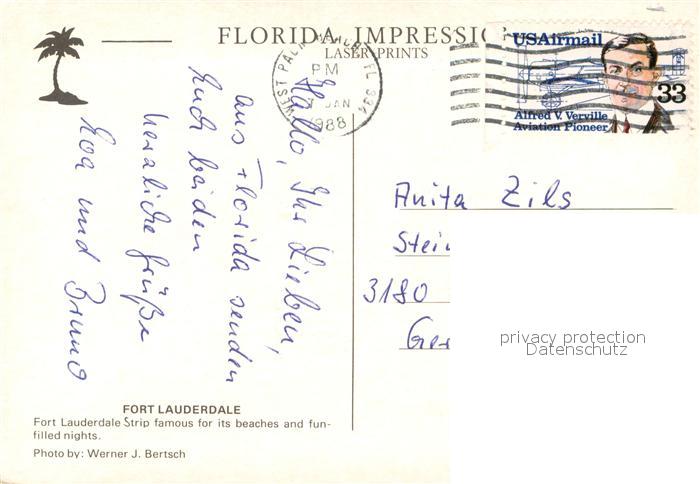 FLORIDA IMPRESSI
LASERPRINTS
WEST PALM BEACH, FL 334
PM
JAN
1988
USAirmail
33
Alfred V. Verville
Aviation Pioneer
Hallo, Ihr Lieben,
aus Florida senden
Euch beiden
herzliche Grüße
Eva und Bruno
Anita Zils
Stei
3180
Ger
privacy protection
Datenschutz
FORT LAUDERDALE
Fort Lauderdale Strip famous for its beaches and fun-
filled nights.
Photo by: Werner J. Bertsch